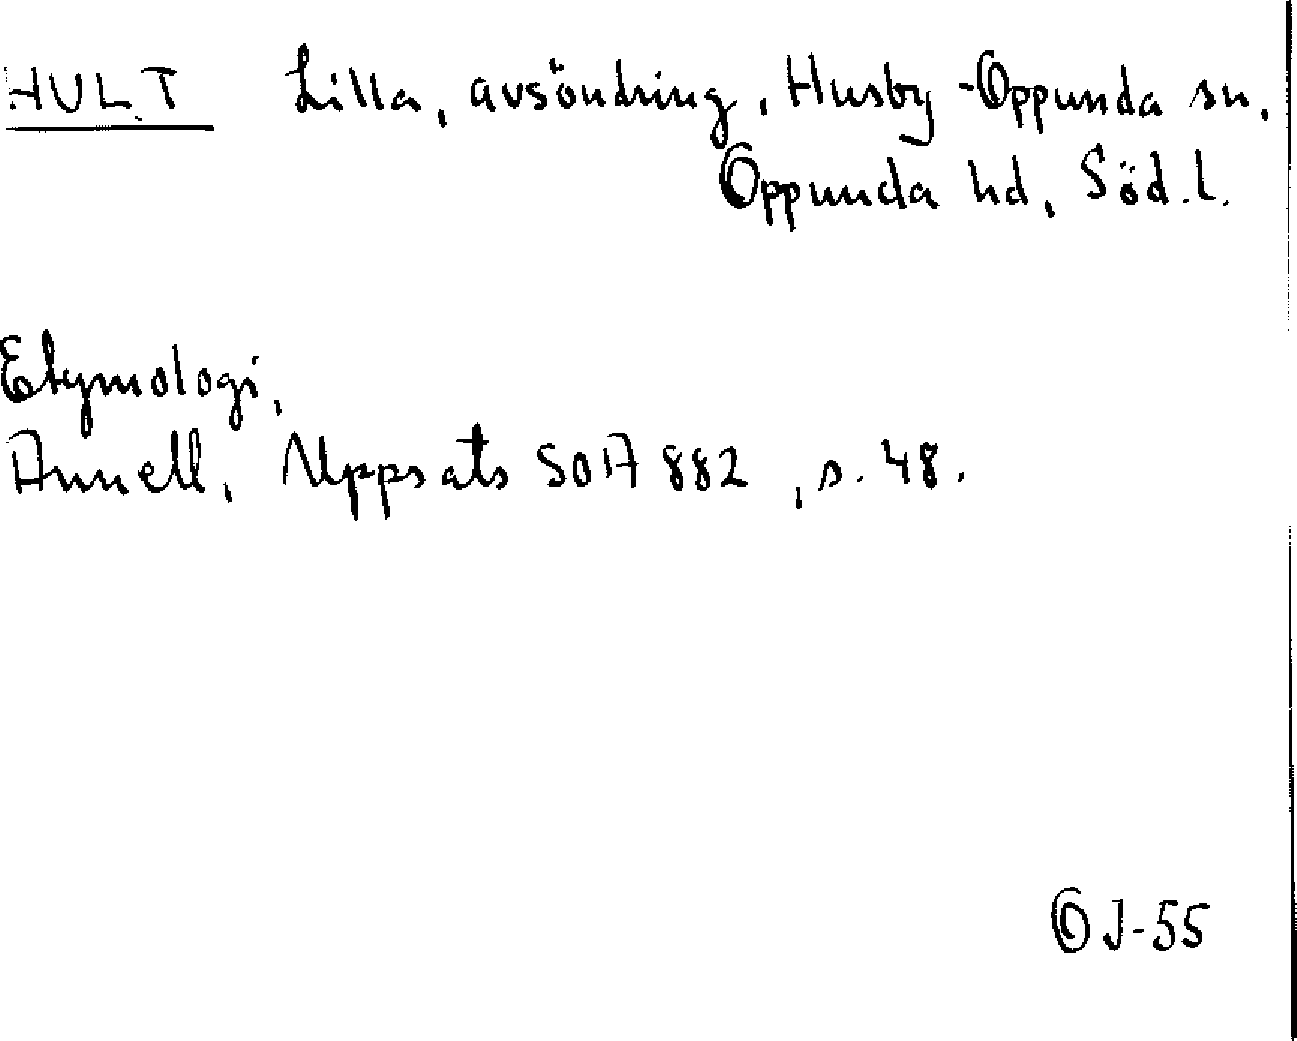 HULT Lilla, avsöndring, Husby-Oppunda sn,
Oppunda hd, Söd.l.
Etymologi,
Annell, Uppsats SOA 882, s. 48.
OJ-55